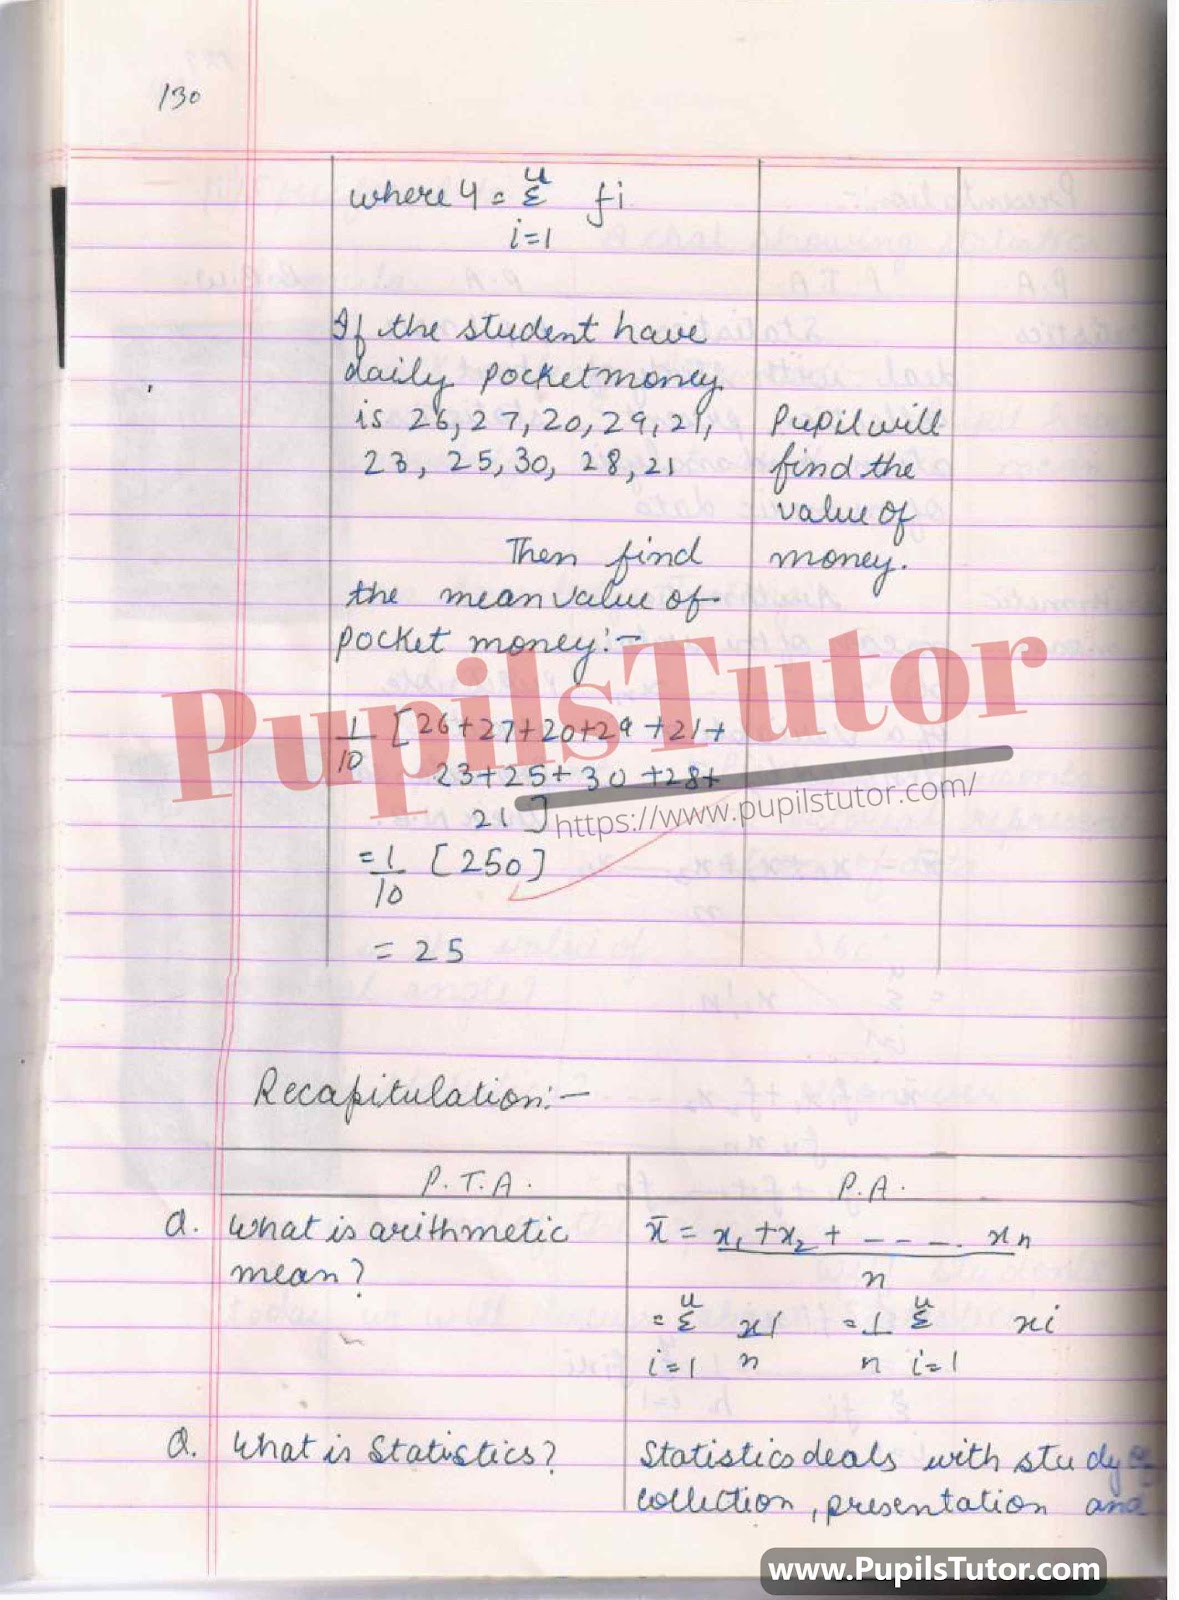 130
where 4 = u Σ fi
i=1
If the student have
daily pocket money
is 26, 27, 20, 29, 21,
23, 25, 30, 28, 21
Pupil will
find the
value of
money.
Then find
the mean value of
pocket money:-
1/10 [26+27+20+29+21+
23+25+30+28+
21]
= 1/10 [250]
= 25
PupilsTutor
https://www.pupilstutor.com/
Recapitulation:-
P.T.A. P.A.
Q. What is arithmetic
mean?
x̄ = x₁+x₂+ ---. xn
n
= u Σ x1 = 1 u Σ xi
i=1 n n i=1
Q. What is Statistics?
Statistics deals with study
collection, presentation and
www.PupilsTutor.com